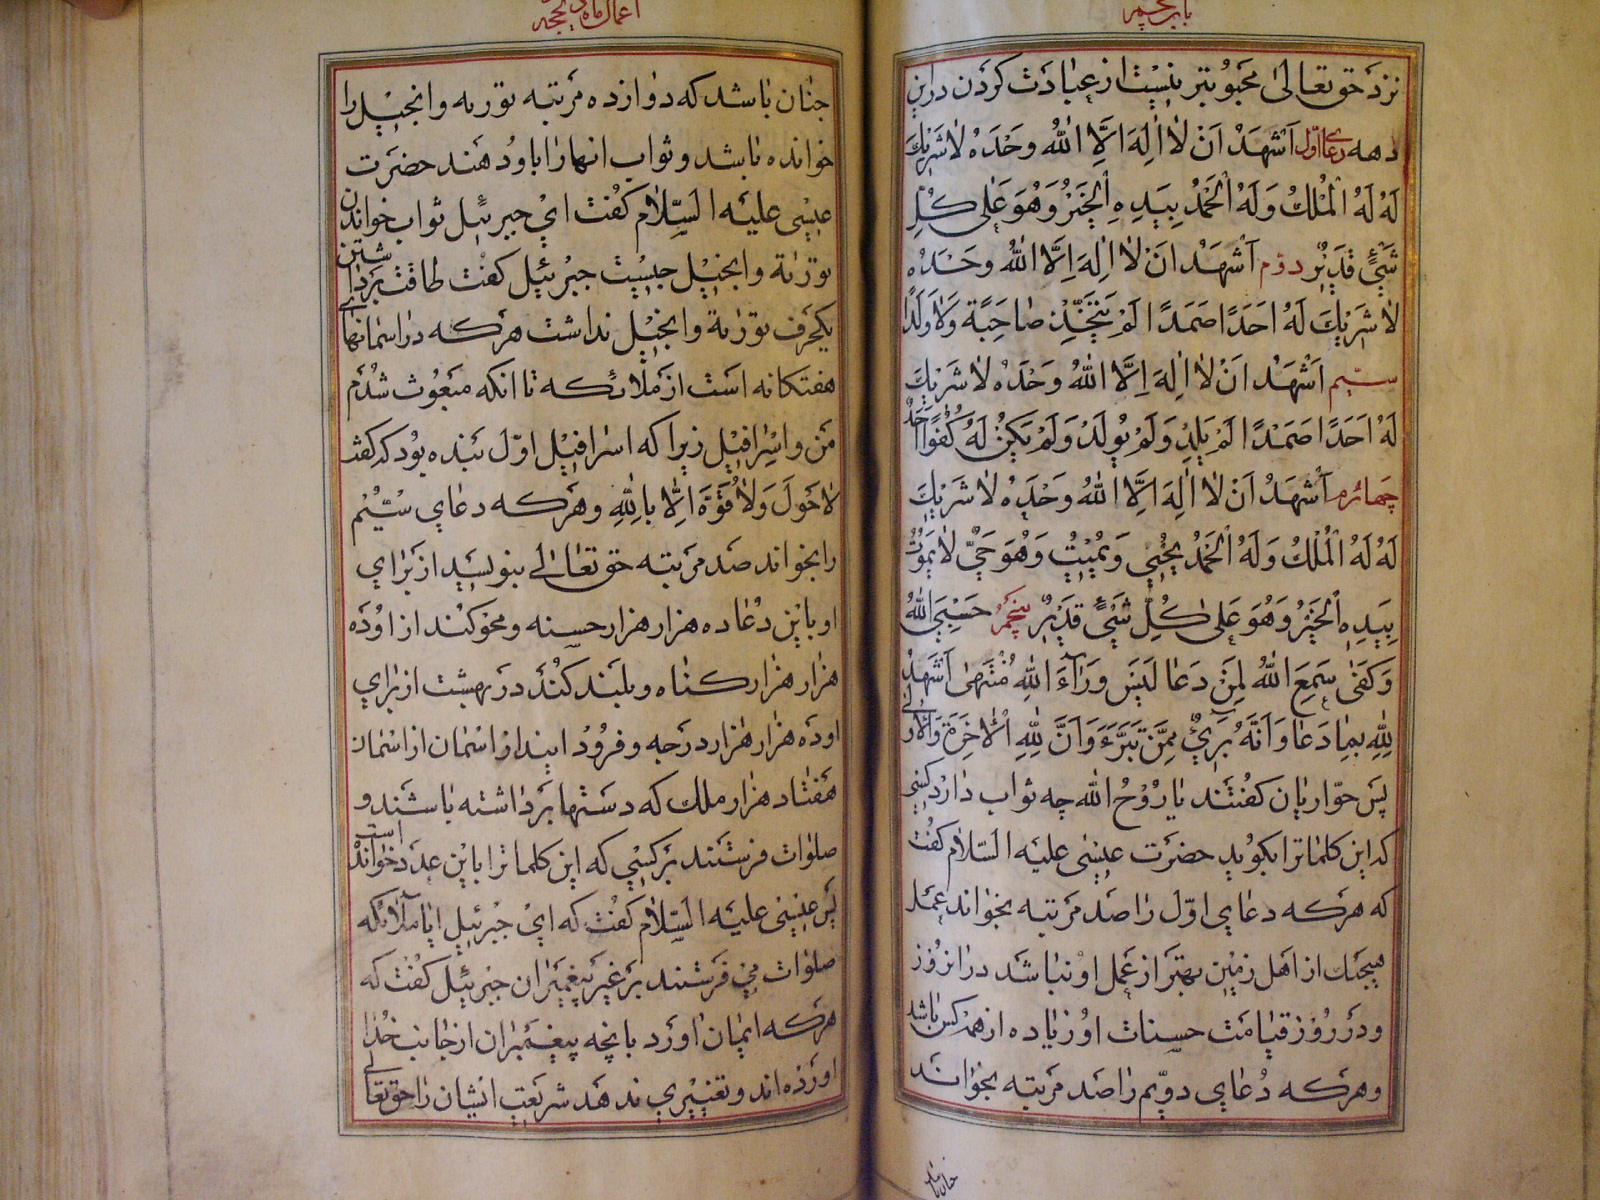 باب پنجم
نزد حق تعالی محبوبتر نیست از عبادت کردن در این
دهه دعا اول اَشْهَدُ اَنْ لا اِلهَ اِلَّا اللهُ وَحْدَهُ لا شَریكَ
لَهُ لَهُ الْمُلْكُ وَلَهُ الْحَمْدُ بِیَدِهِ الْخَیْرُ وَهُوَ عَلی كُلِّ
شَیْءٍ قَدیرٌ دوم اَشْهَدُ اَنْ لا اِلهَ اِلَّا اللهُ وَحْدَهُ
لا شَریكَ لَهُ اَحَدًا صَمَدًا لَمْ یَتَّخِذْ صاحِبَةً وَلا وَلَدًا
سیم اَشْهَدُ اَنْ لا اِلهَ اِلَّا اللهُ وَحْدَهُ لا شَریكَ
لَهُ اَحَدًا صَمَدًا لَمْ یَلِدْ وَلَمْ یُولَدْ وَلَمْ یَكُنْ لَهُ كُفُوًا اَحَدٌ
چهارم اَشْهَدُ اَنْ لا اِلهَ اِلَّا اللهُ وَحْدَهُ لا شَریكَ
لَهُ لَهُ الْمُلْكُ وَلَهُ الْحَمْدُ یُحْیی وَیُمیتُ وَهُوَ حَیٌّ لا یَمُوتُ
بِیَدِهِ الْخَیْرُ وَهُوَ عَلی كُلِّ شَیْءٍ قَدیرٌ پنجم حَسْبِیَ اللهُ
وَكَفی سَمِعَ اللهُ لِمَنْ دَعا لَیْسَ وَرآءَ اللهِ مُنْتَهی اَشْهَدُ
لِلّهِ بِما دَعا وَاَنَّهُ بَرِیءٌ مِمَّنْ تَبَرَّءَ وَاَنَّ لِلّهِ الْاخِرَةَ وَالْاُولی
پس حواریان گفتند یا روح الله چه ثواب دارد کسی
که این کلماترا بگوید حضرت عیسی علیه السلام گفت
که هرکه دعای اول را صد مرتبه بخواند عمل
هیچیك از اهل زمین بهتر از عمل او نباشد در انروز
و در روز قیامت حسنات او زیاده از همه کس باشد
وهرکه دعای دویم را صد مرتبه بخواند
چنان باشد
اعمال ماه ذیحجه
چنان باشد که دوازده مرتبه توریه وانجیل را
خوانده باشد و ثواب انها را باو دهند حضرت
عیسی علیه السلام گفت ای جبرئیل ثواب خواندن
توراة وانجیل چیست جبرئیل گفت طاقت برداشتن
یکحرف توراة وانجیل نداشت هرکه در اسمانهای
هفتکانه است از ملائکه تا انکه مبعوث شدم
من واسرافیل زیرا که اسرافیل اول بنده بود که گفت
لا حَوْلَ وَلا قُوَّةَ اِلّا بِاللهِ وهرکه دعای سیم
را بخواند صد مرتبه حق تعالی بنویسد از برای
او باین دعا ده هزار هزار حسنه و محو کند از او ده
هزار هزار کناه و بلند کند در بهشت از برای
او ده هزار هزار درجه و فرود ایند از اسمان از اسمان
هفتاد هزار ملك که دستها برداشته باشند و
صلوات فرستند بر کسی که این کلماترا باین عدد خوانده است
پس عیسی علیه السلام گفت که ای جبرئیل ایا ملائکه
صلوات می فرستند بر غیر پیغمبران جبرئیل گفت که
هرکه ایمان اورد بانچه پیغمبران از جانب خدا
اورده اند و تغییری ندهد شریعت ایشان را حق تعالی